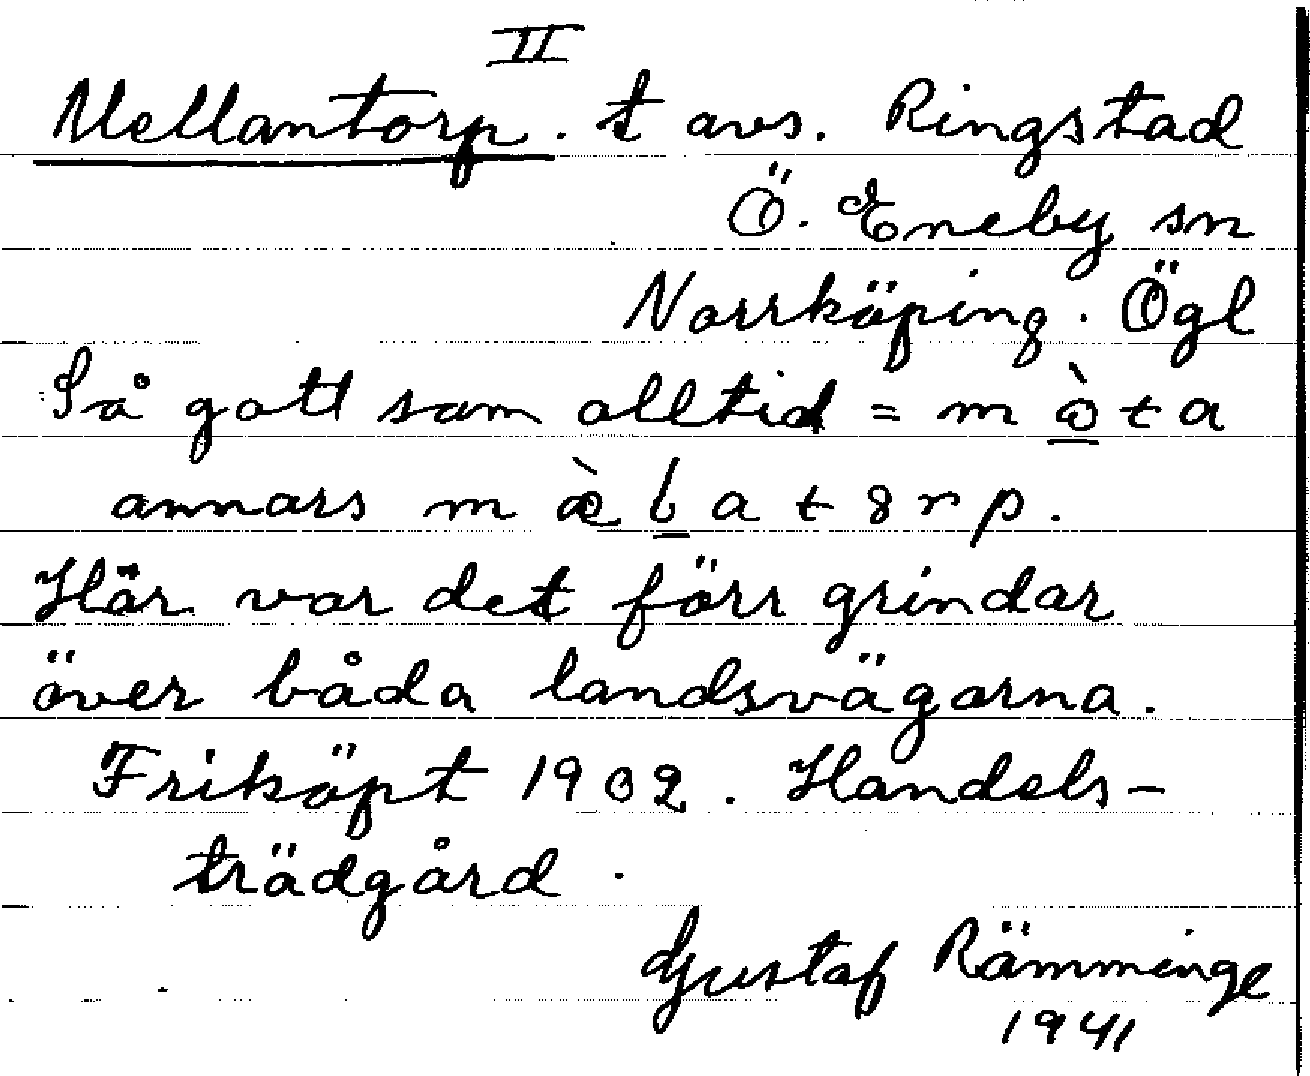 II
Mellantorp. t avs. Ringstad
Ö. Eneby sn
Norrköping. Ögl
Så gott som alltid = m ò t a
annars m æ̀ l a t 8 r p.
Här var det förr grindar
över båda landsvägarna.
Friköpt 1902. Handels-
trädgård.
Gustaf Rämminge
1941